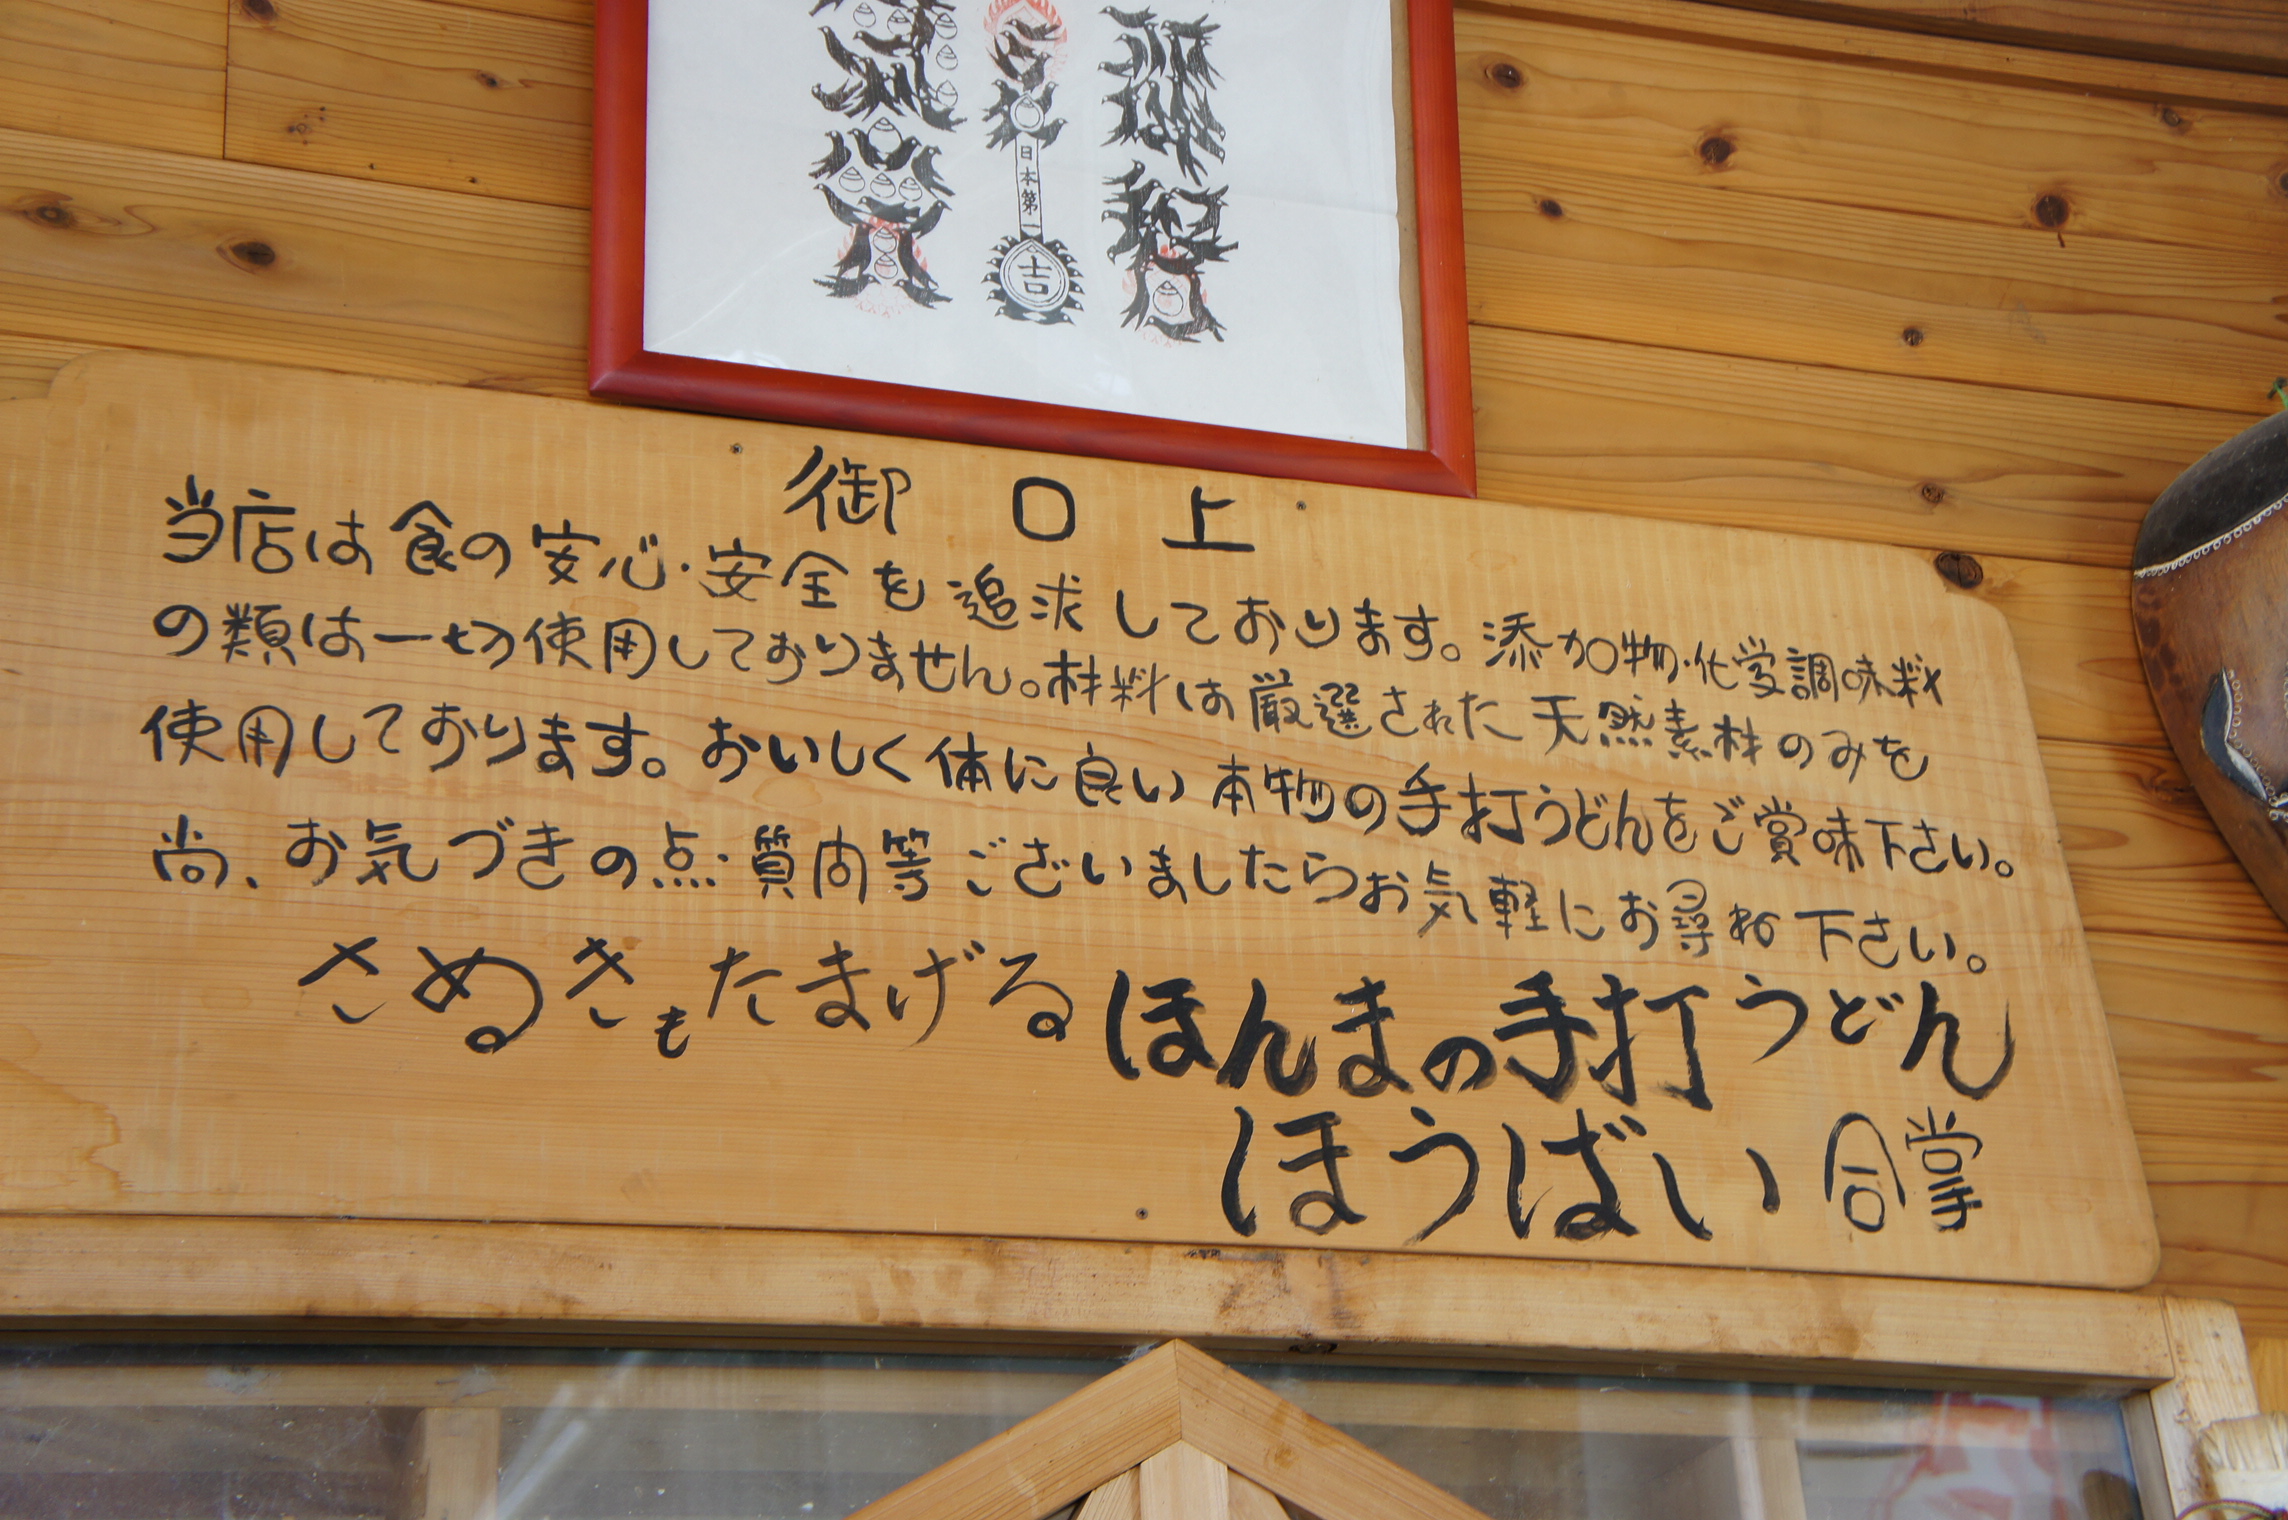 日本第一
吉
御口上
当店は食の安心・安全を追求しております。添加物・化学調味料
の類は一切使用しておりません。材料は厳選された天然素材のみを
使用しております。おいしく体に良い本物の手打うどんをご賞味下さい。
尚、お気づきの点・質問等ございましたらお気軽にお尋ね下さい。
さぬきもたまげるほんまの手打うどん
ほうばい 合掌